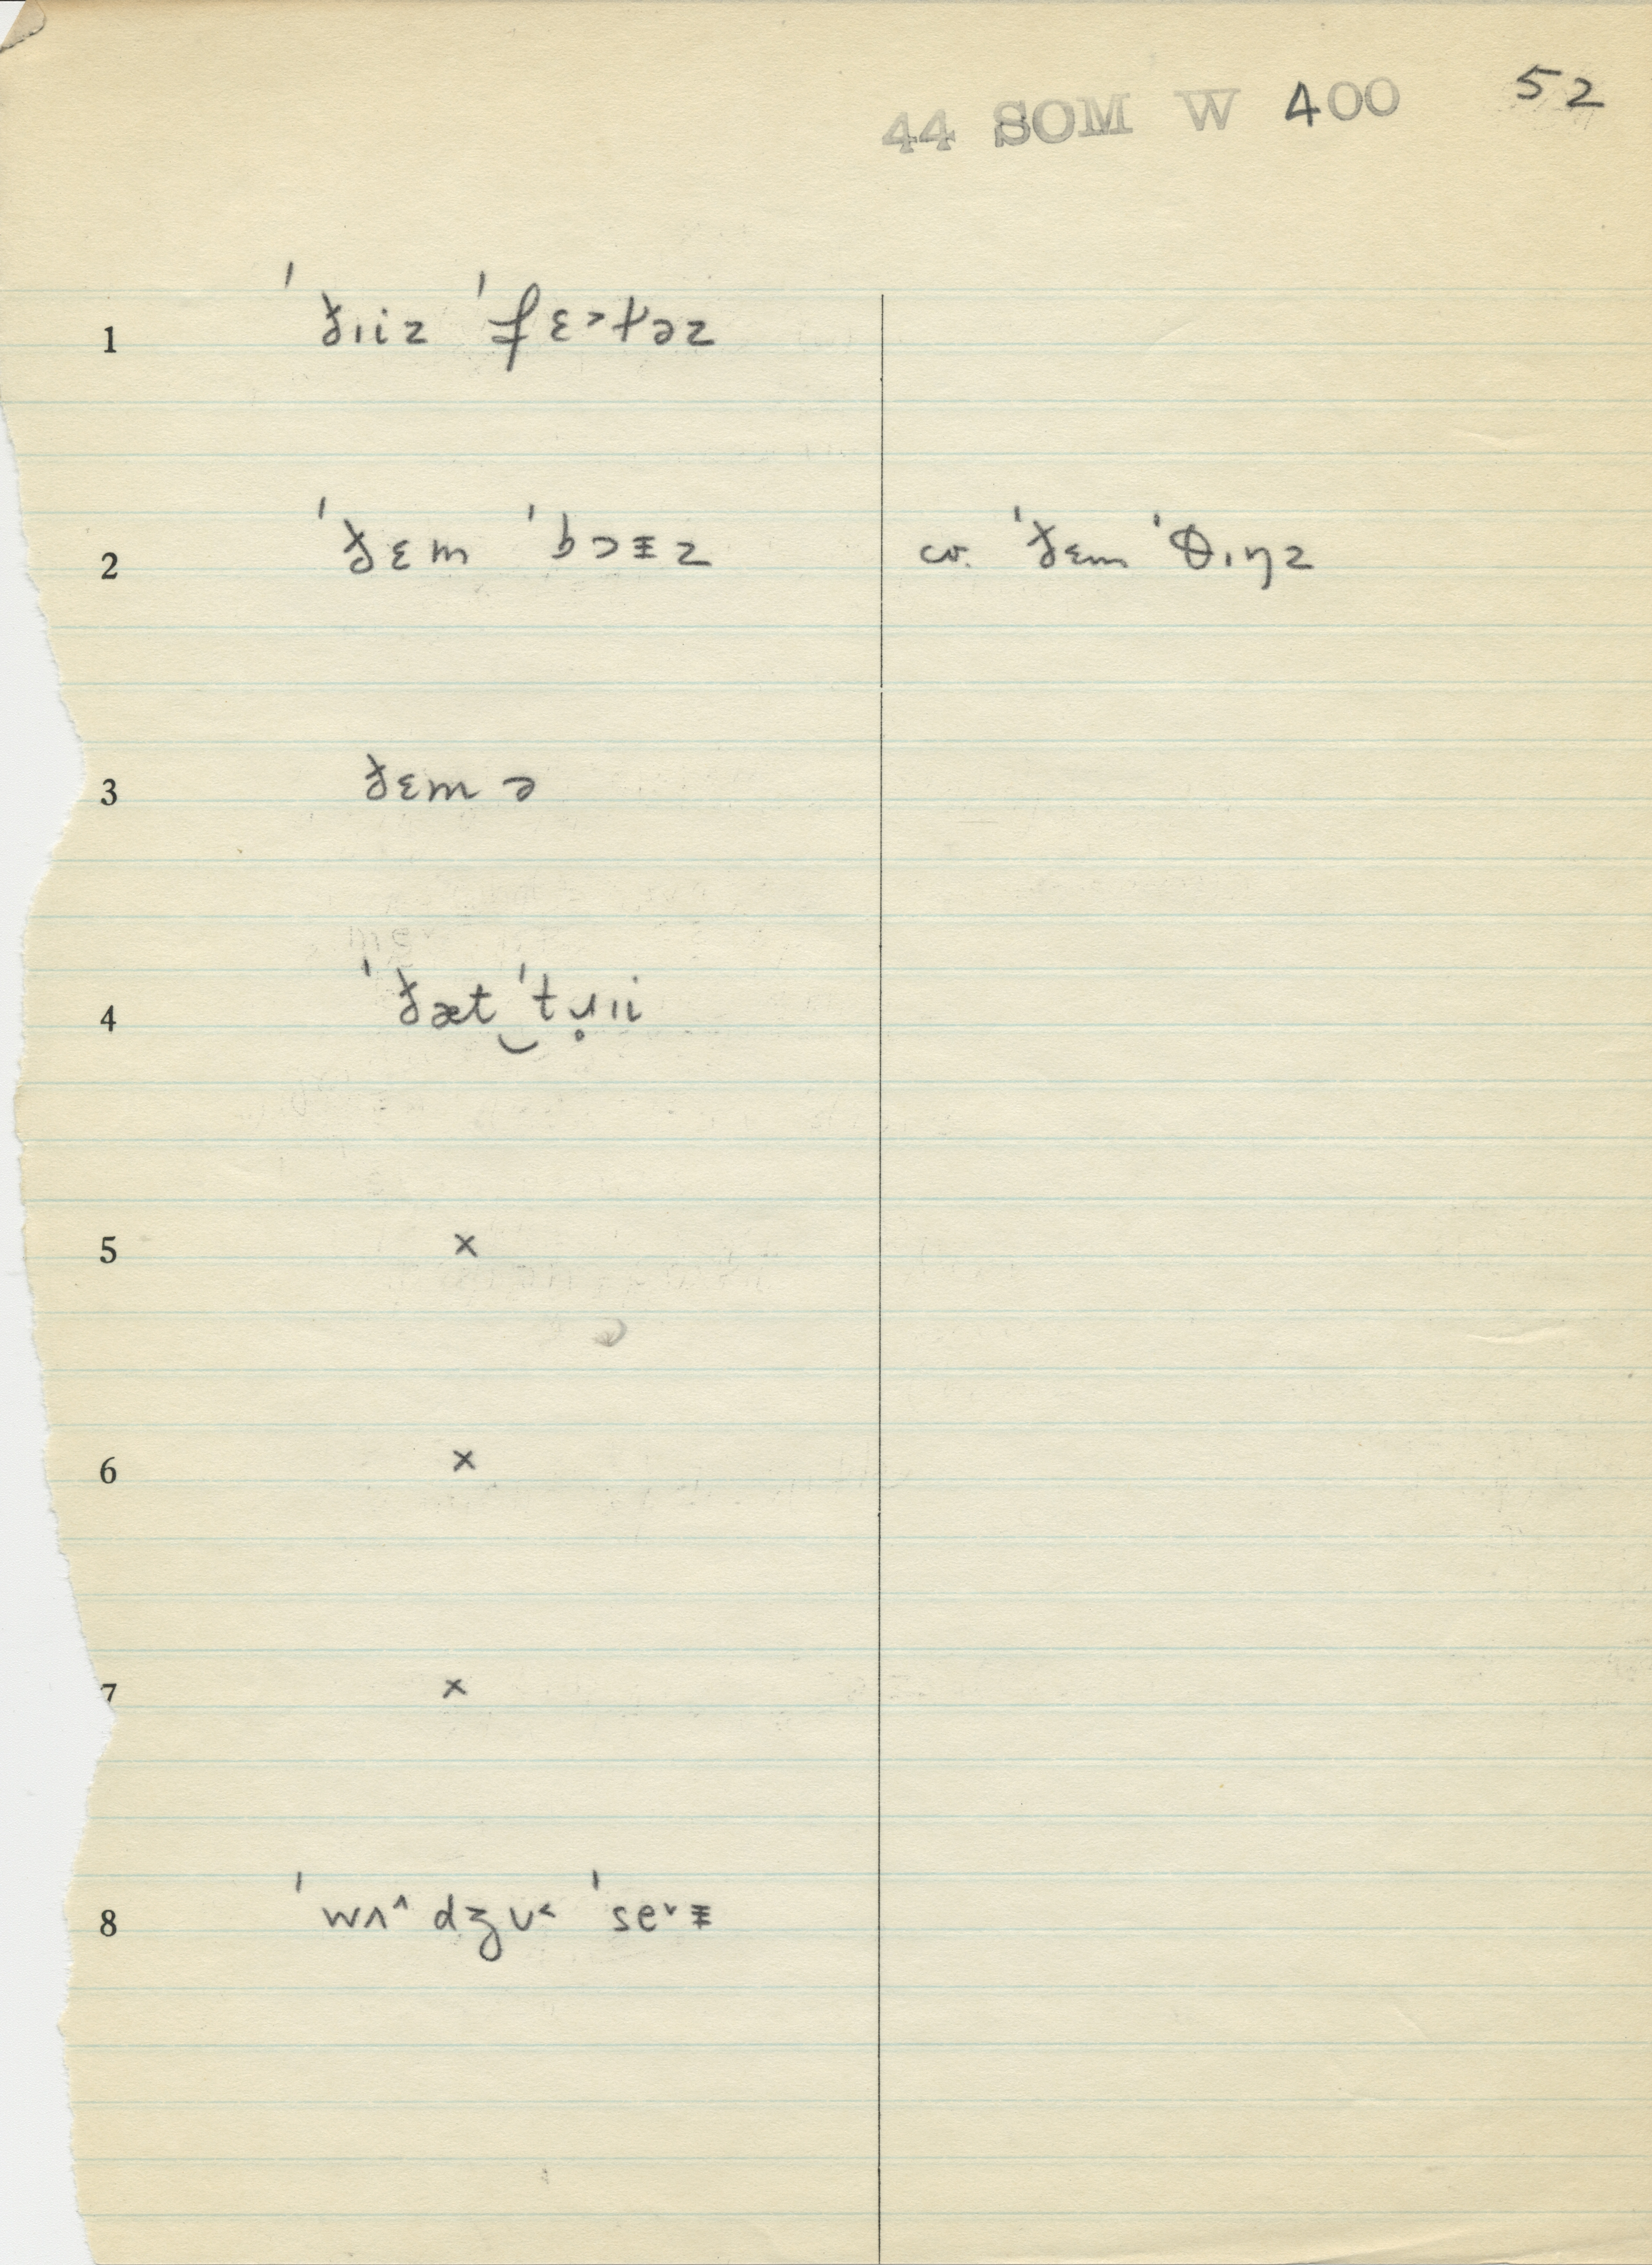 44 SOM W 400 52
1 ˈðɪiz ˈfɛ˃ɫəz
2 ˈðɛm ˈbɔᵻz cv. ˈðɛm ˈθɪŋz
3 ðɛm ə
4 ˈðæt‿ˈtɹ̥ɪi
5 ×
6 ×
7 ×
8 ˈwʌ˄dʒʊ˂ ˈse˅ᵻ